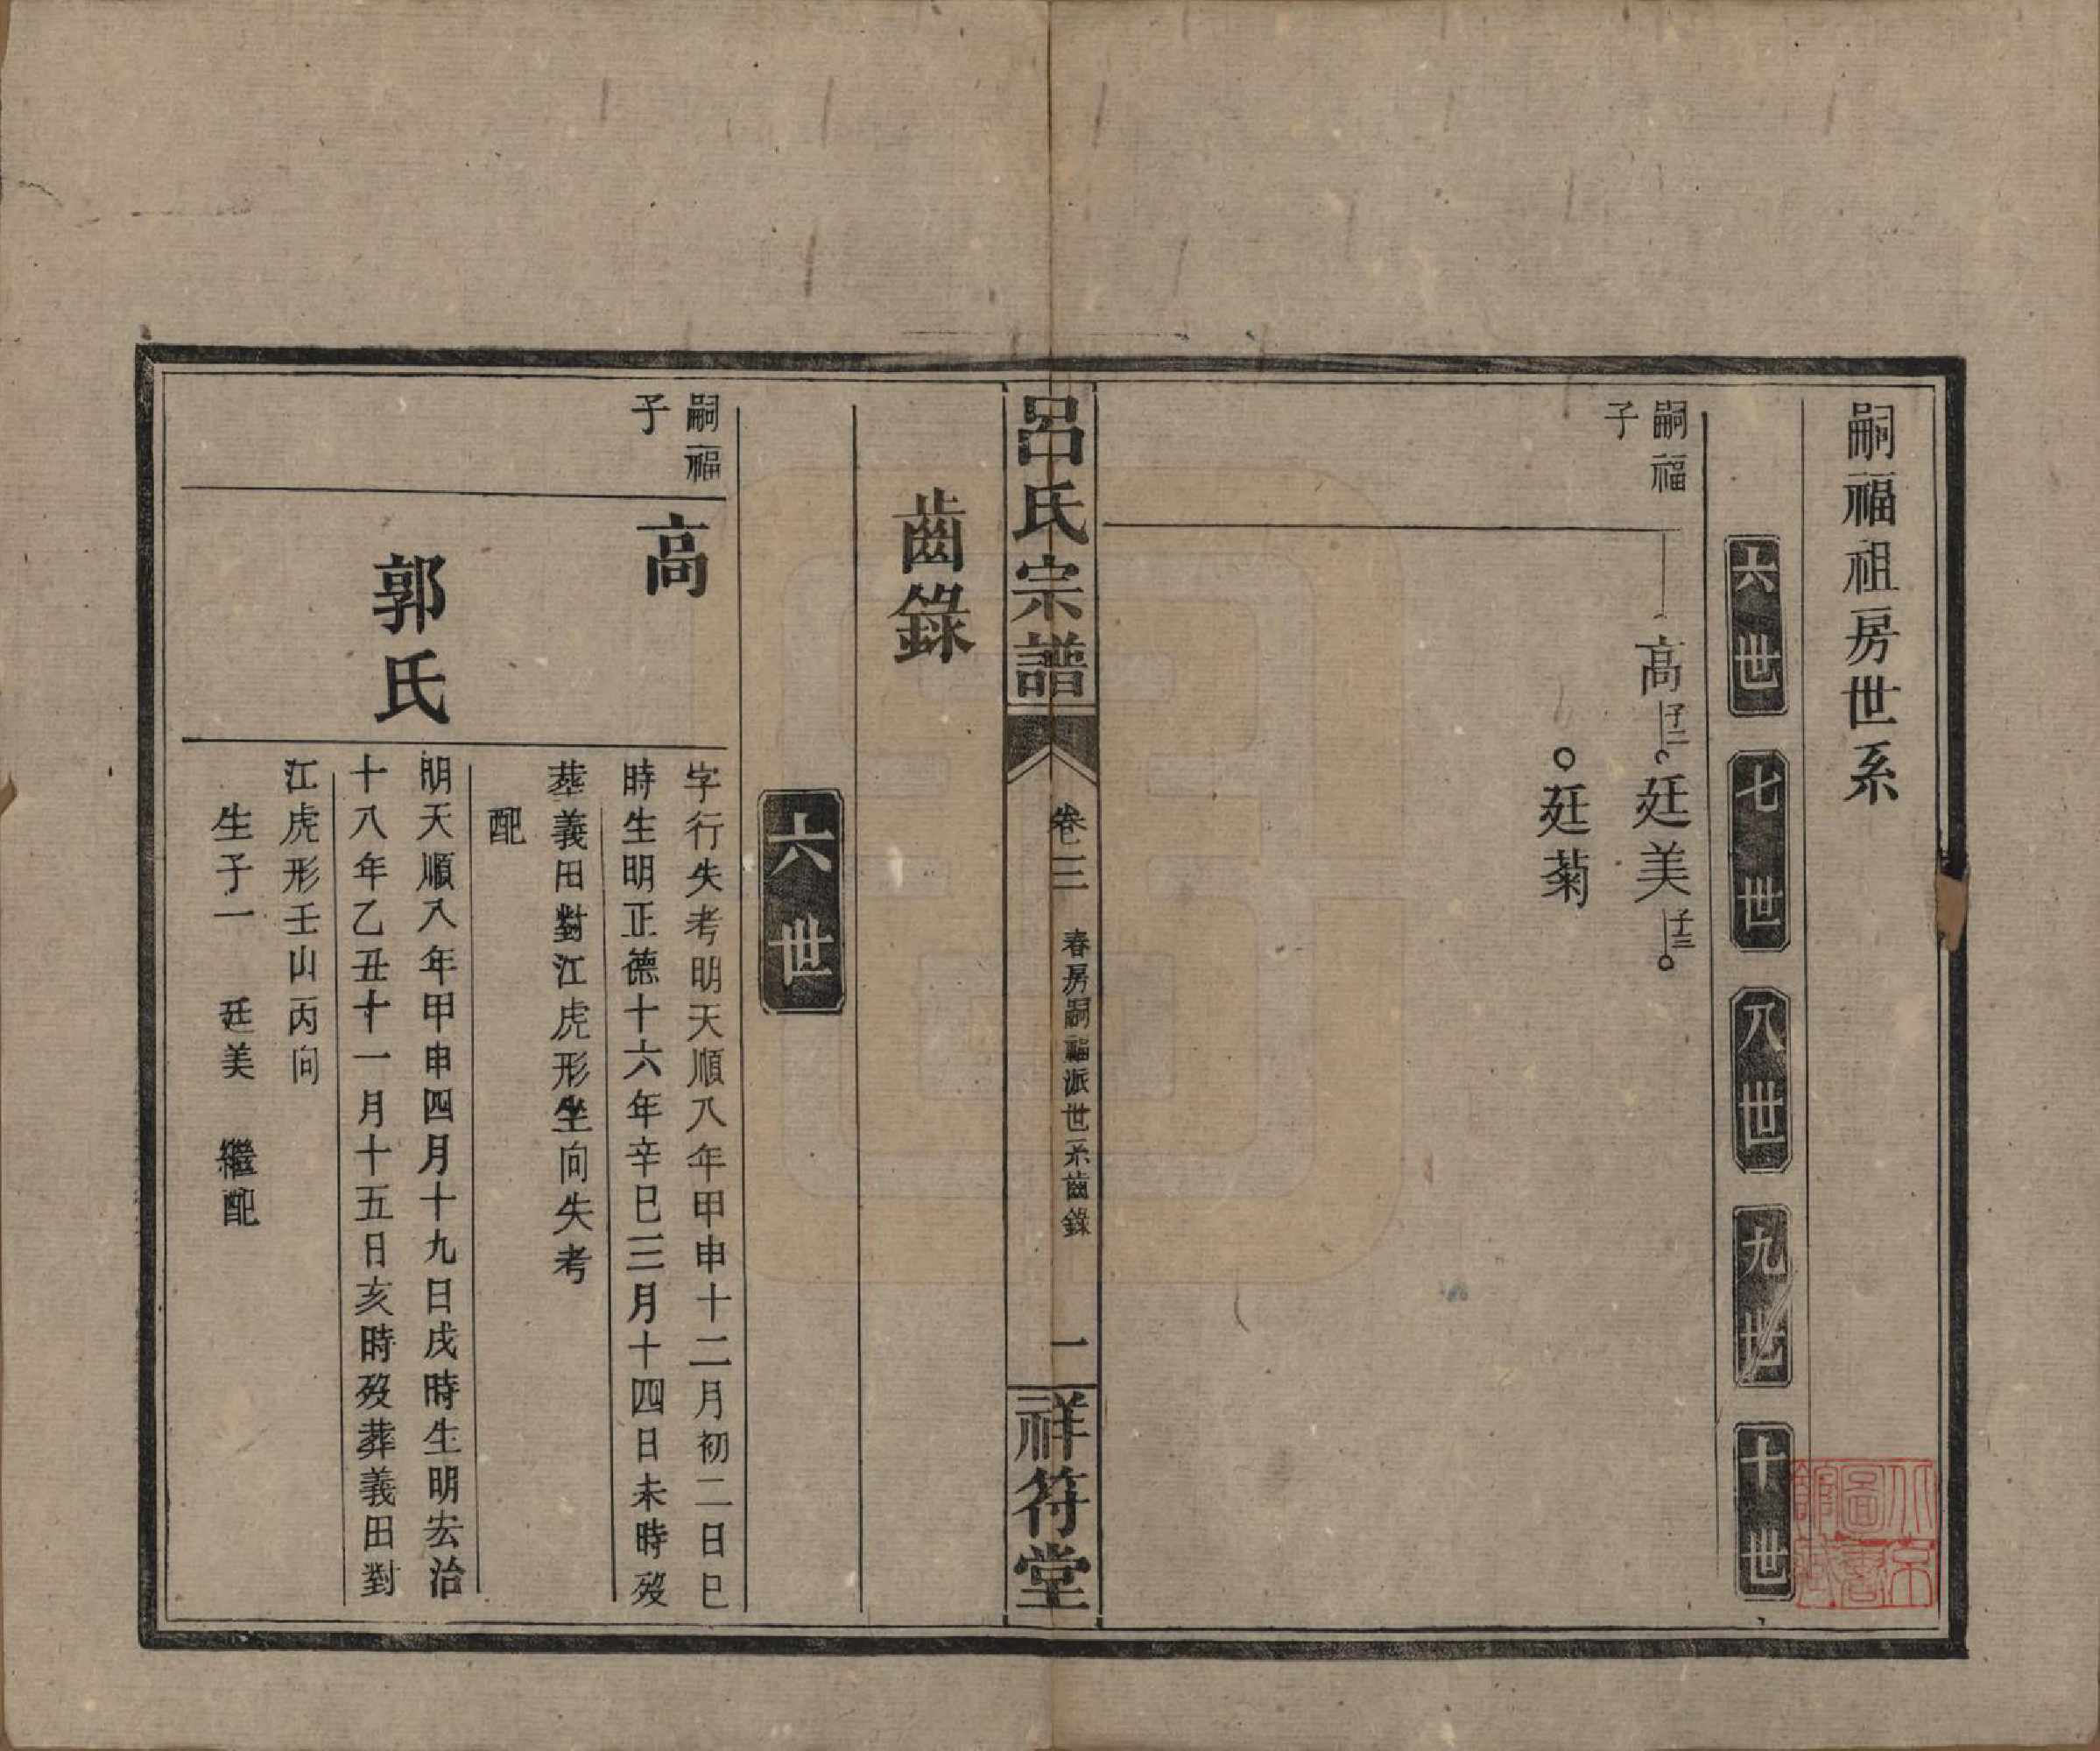 嗣福祖房世系
六世
七世
八世
九世
十世
嗣福
子
高
子二
廷美
子三
廷菊
呂氏宗譜
卷三
春房嗣福派世系齒錄
一
祥符堂
齒錄
六世
嗣福
子
高
字行失考明天順八年甲申十二月初二日巳
時生明正德十六年辛巳三月十四日未時歿
葬義田對江虎形坐向失考
配
郭氏
明天順八年甲申四月十九日戌時生明宏治
十八年乙丑十一月十五日亥時歿葬義田對
江虎形壬山丙向
生子一 廷美 繼配
北京
圖書
館藏